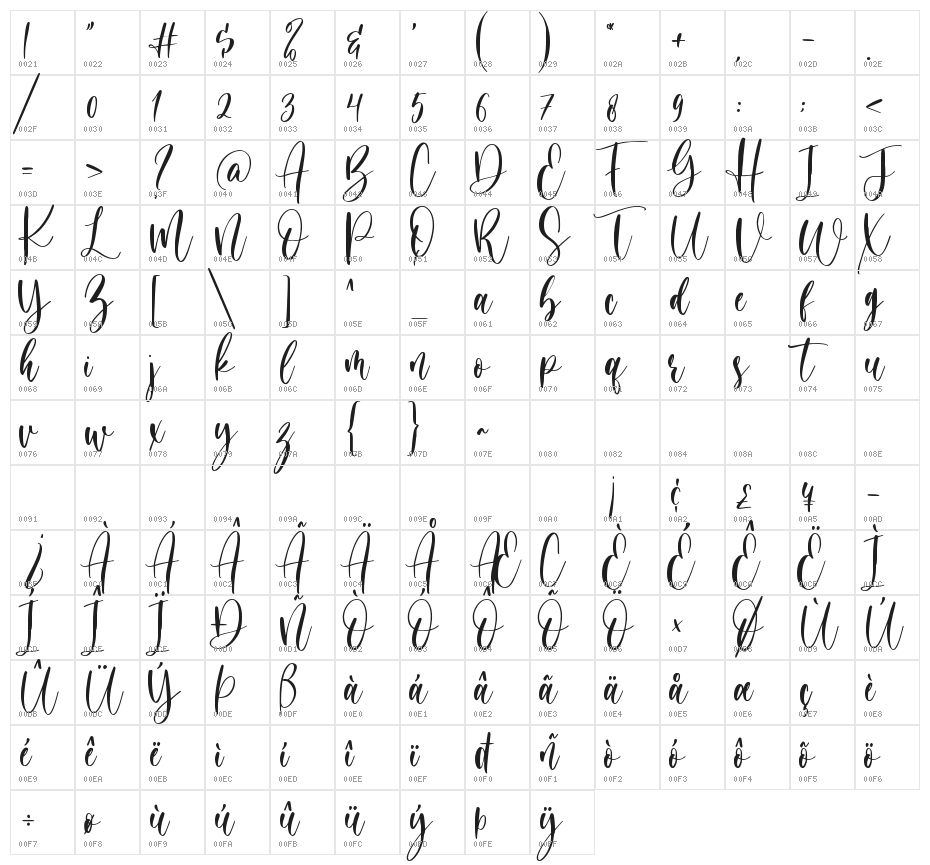 ! " # $ % & ' ( ) * + , - .
0021 0022 0023 0024 0025 0026 0027 0028 0029 002A 002B 002C 002D 002E
/ 0 1 2 3 4 5 6 7 8 9 : ; <
002F 0030 0031 0032 0033 0034 0035 0036 0037 0038 0039 003A 003B 003C
= > ? @ A B C D E F G H I J
003D 003E 003F 0040 0041 0042 0043 0044 0045 0046 0047 0048 0049 004A
K L M N O P Q R S T U V W X
004B 004C 004D 004E 004F 0050 0051 0052 0053 0054 0055 0056 0057 0058
Y Z [ \ ] ^ _ a b c d e f g
0059 005A 005B 005C 005D 005E 005F 0061 0062 0063 0064 0065 0066 0067
h i j k l m n o p q r s t u
0068 0069 006A 006B 006C 006D 006E 006F 0070 0071 0072 0073 0074 0075
v w x y z { } ~
0076 0077 0078 0079 007A 007B 007D 007E 0080 0082 0084 008A 008C 008E
¡ ¢ £ ¥ -
0091 0092 0093 0094 009A 009C 009E 009F 00A0 00A1 00A2 00A3 00A5 00AD
¿ À Á Â Ã Ä Å Æ Ç È É Ê Ë Ì
00BF 00C0 00C1 00C2 00C3 00C4 00C5 00C6 00C7 00C8 00C9 00CA 00CB 00CC
Í Î Ï Ð Ñ Ò Ó Ô Õ Ö × Ø Ù Ú
00CD 00CE 00CF 00D0 00D1 00D2 00D3 00D4 00D5 00D6 00D7 00D8 00D9 00DA
Û Ü Ý Þ ß à á â ã ä å æ ç è
00DB 00DC 00DD 00DE 00DF 00E0 00E1 00E2 00E3 00E4 00E5 00E6 00E7 00E8
é ê ë ì í î ï ð ñ ò ó ô õ ö
00E9 00EA 00EB 00EC 00ED 00EE 00EF 00F0 00F1 00F2 00F3 00F4 00F5 00F6
÷ ø ù ú û ü ý þ ÿ
00F7 00F8 00F9 00FA 00FB 00FC 00FD 00FE 00FF